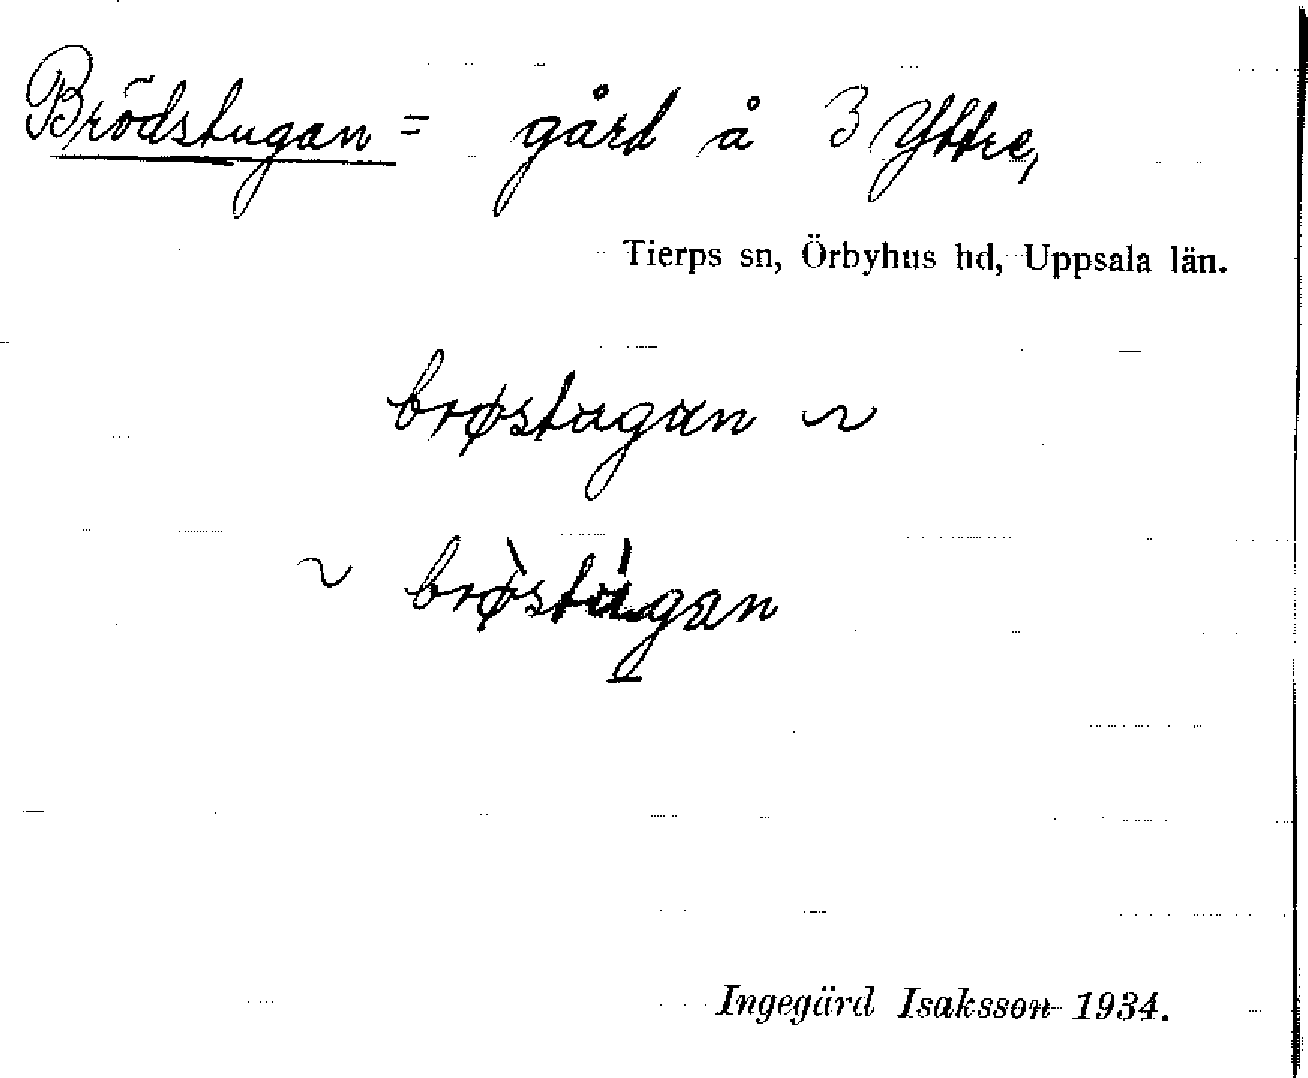 Brödstugan = gård å 3 Yttre,
Tierps sn, Örbyhus hd, Uppsala län.
brøstugan ~
~ brø̀stúgan
Ingegärd Isaksson 1934.